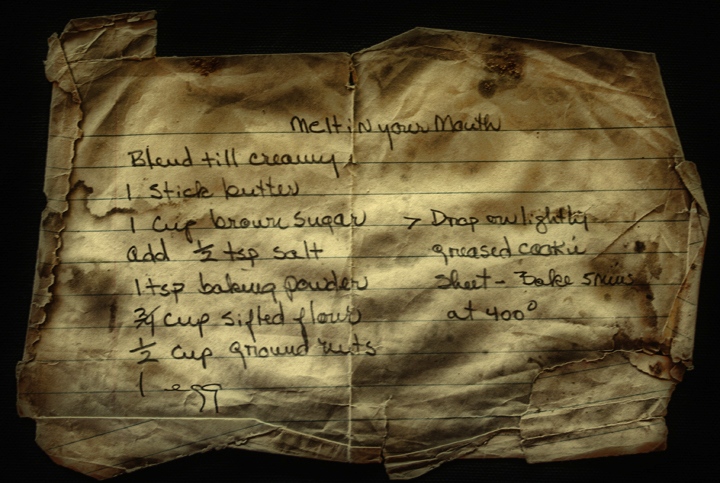 Melt in your Mouth
Blend till creamy
1 Stick butter
1 Cup brown Sugar
add ½ tsp salt
1 tsp baking powder
¾ cup sifted flour
½ cup ground nuts
1 egg
> Drop on lightly
greased cookie
Sheet - Bake 5 mins
at 400°